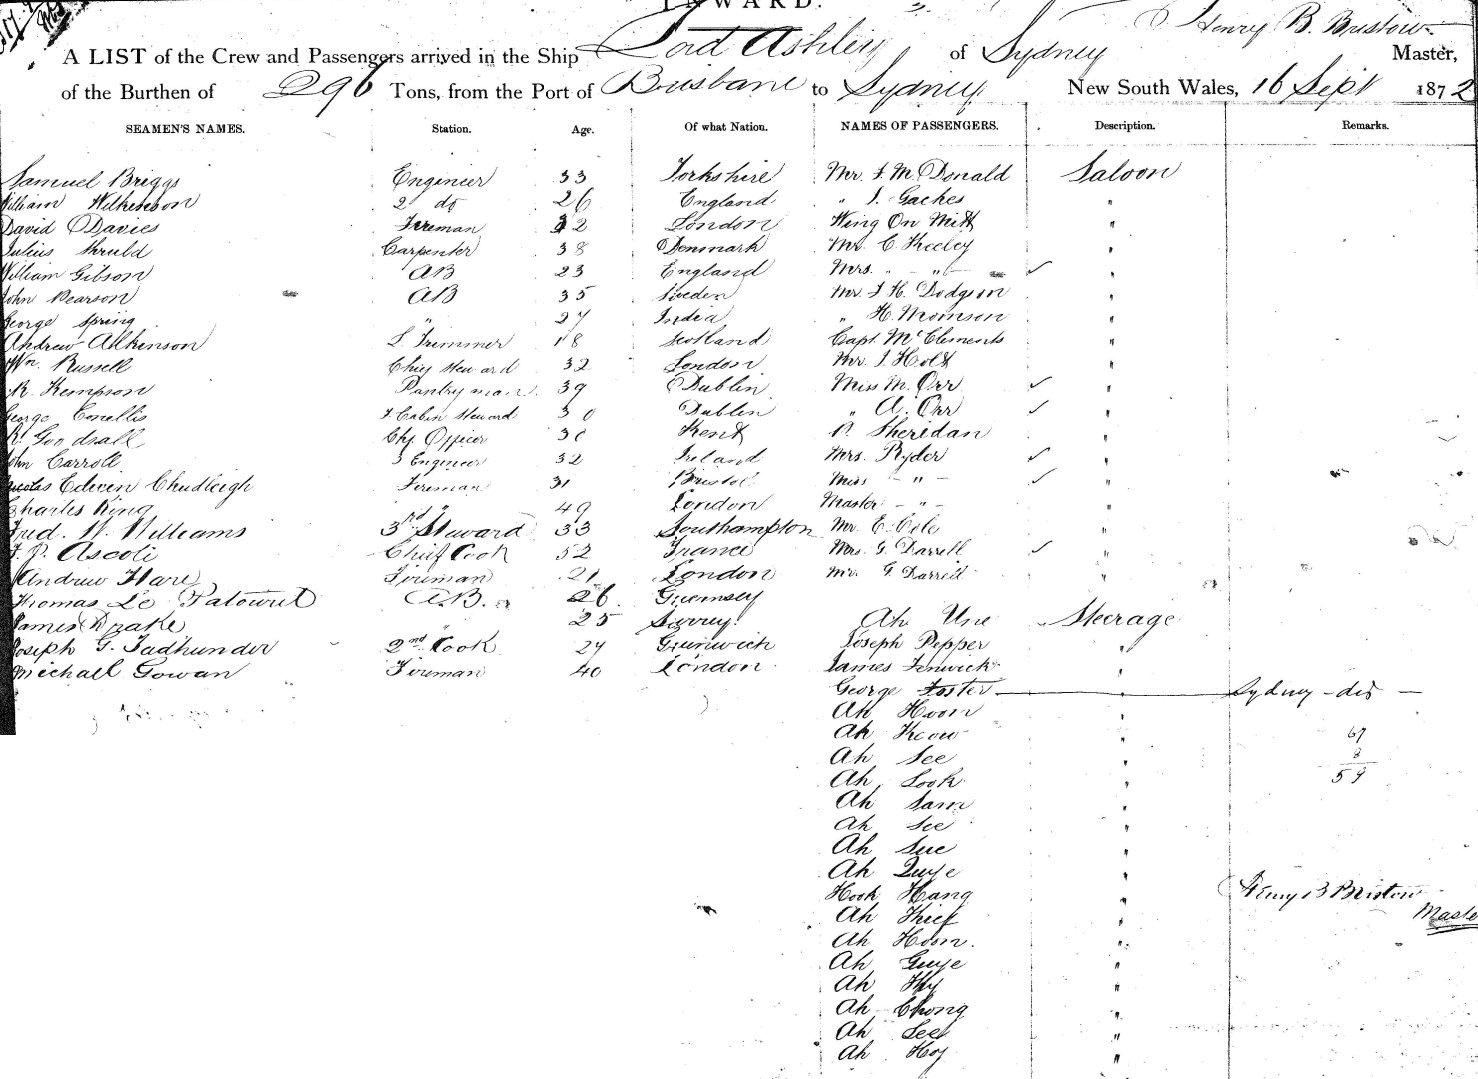 INWARD.
Henry B. Bristow
A LIST of the Crew and Passengers arrived in the Ship Lord Ashley of Sydney Master,
of the Burthen of 296 Tons, from the Port of Brisbane to Sydney New South Wales, 16 Sept 1872
SEAMEN'S NAMES. Station. Age. Of what Nation. NAMES OF PASSENGERS. Description. Remarks.
Samuel Briggs Engineer 33 Yorkshire Mr. F McDonald Saloon
William Wilkinson 2 do 26 England " J. Gaches "
David Davies Fireman 32 London Wing On "
Julius Carpenter 38 Denmark Mr. C Keeley "
William Gibson AB 23 England Mrs. " "
John Pearson AB 35 Sweden Mr. J H. Dodgson "
George Spring " 27 India " H. "
Andrew Atkinson Trimmer 18 Scotland Capt. McClements "
Wm. Russell Chief Steward 32 London Mr. J. Holt "
R. Kempson Pantryman 39 Dublin Miss M. Orr "
George Cabin Steward 30 Dublin " A. Orr "
R. Goodsall Chf. Officer Kent P. Sheridan "
John Carroll 3 Engineer 32 Ireland Mrs. Ryder "
Edwin Chudleigh Fireman 31 Bristol Miss " "
Charles King " 49 London Master " "
Fred. W. Williams 3rd Steward 33 Southampton Mr. E. Cole "
F. P. Ascoli Chief Cook 52 France Mrs. G. Darrell "
Andrew Hare Fireman 21 London Mr. G Darrell "
Thomas Le A.B. 26 Guernsey
James Drake " 25 Surrey. Ah Une Steerage
Joseph G. Tadhunder 2nd Cook 27 Greenwich Joseph Pepper "
Michael Gowan Fireman 40 London James Fenwick "
George Foster Sydney - dis -
Ah Hoon "
Ah "
67
Ah See "
8
Ah Look "
59
Ah Sam "
Ah See "
Ah Sue "
Ah Quye "
Hook Hang "
Henry B Bristow
Ah "
Master
Ah Hoon. "
Ah Guye "
Ah "
Ah Chong "
Ah Lee "
Ah Hoy "